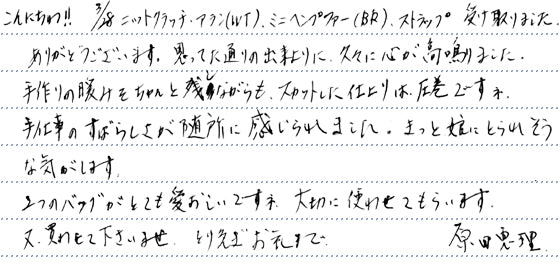 こんにちわ!! 3/28 ニットクラッチ・アラン(WT)、ミニヘンプファー(BR)、ストラップ 受け取りました。
ありがとうございます。思ってた通りの出来上りに、久々に心が高鳴りました。
手作りの暖みをちゃんと残しながらも、スカットした仕上りは、圧巻ですネ。
手仕事のすばらしさが随所に感じられました。きっと娘にとられそう
な気がします。
2つのバッグがとても愛おしいですネ 大切に使わせてもらいます。
又、買わせて下さいませ。 とり急ぎお礼まで 原田恵理